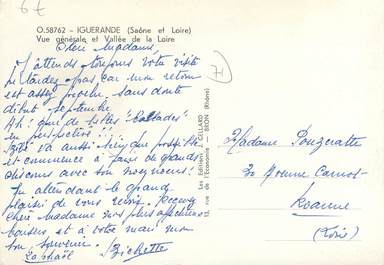 67
O.58762 - IGUERANDE (Saône et Loire)
Vue générale et Vallée de la Loire
Chère Madame,
J'attends toujours votre visite
ne tardez pas car mon retour
est assez proche. Sans doute
début septembre
Ah! que de belles "ballades"
en perspective!!!
va aussi bien que possible
et commence à faire de grands
discours avec son
En attendant le grand
plaisir de vous revoir. Recevez
chère Madame mes plus affectueux
baisers et à votre mari mon
bon souvenir.
Raphaël Bichette
71
Les Éditions CELLARD
13, rue de l'Économie - BRON (Rhône)
Madame
30 Avenue Carnot
Roanne
(Loire)